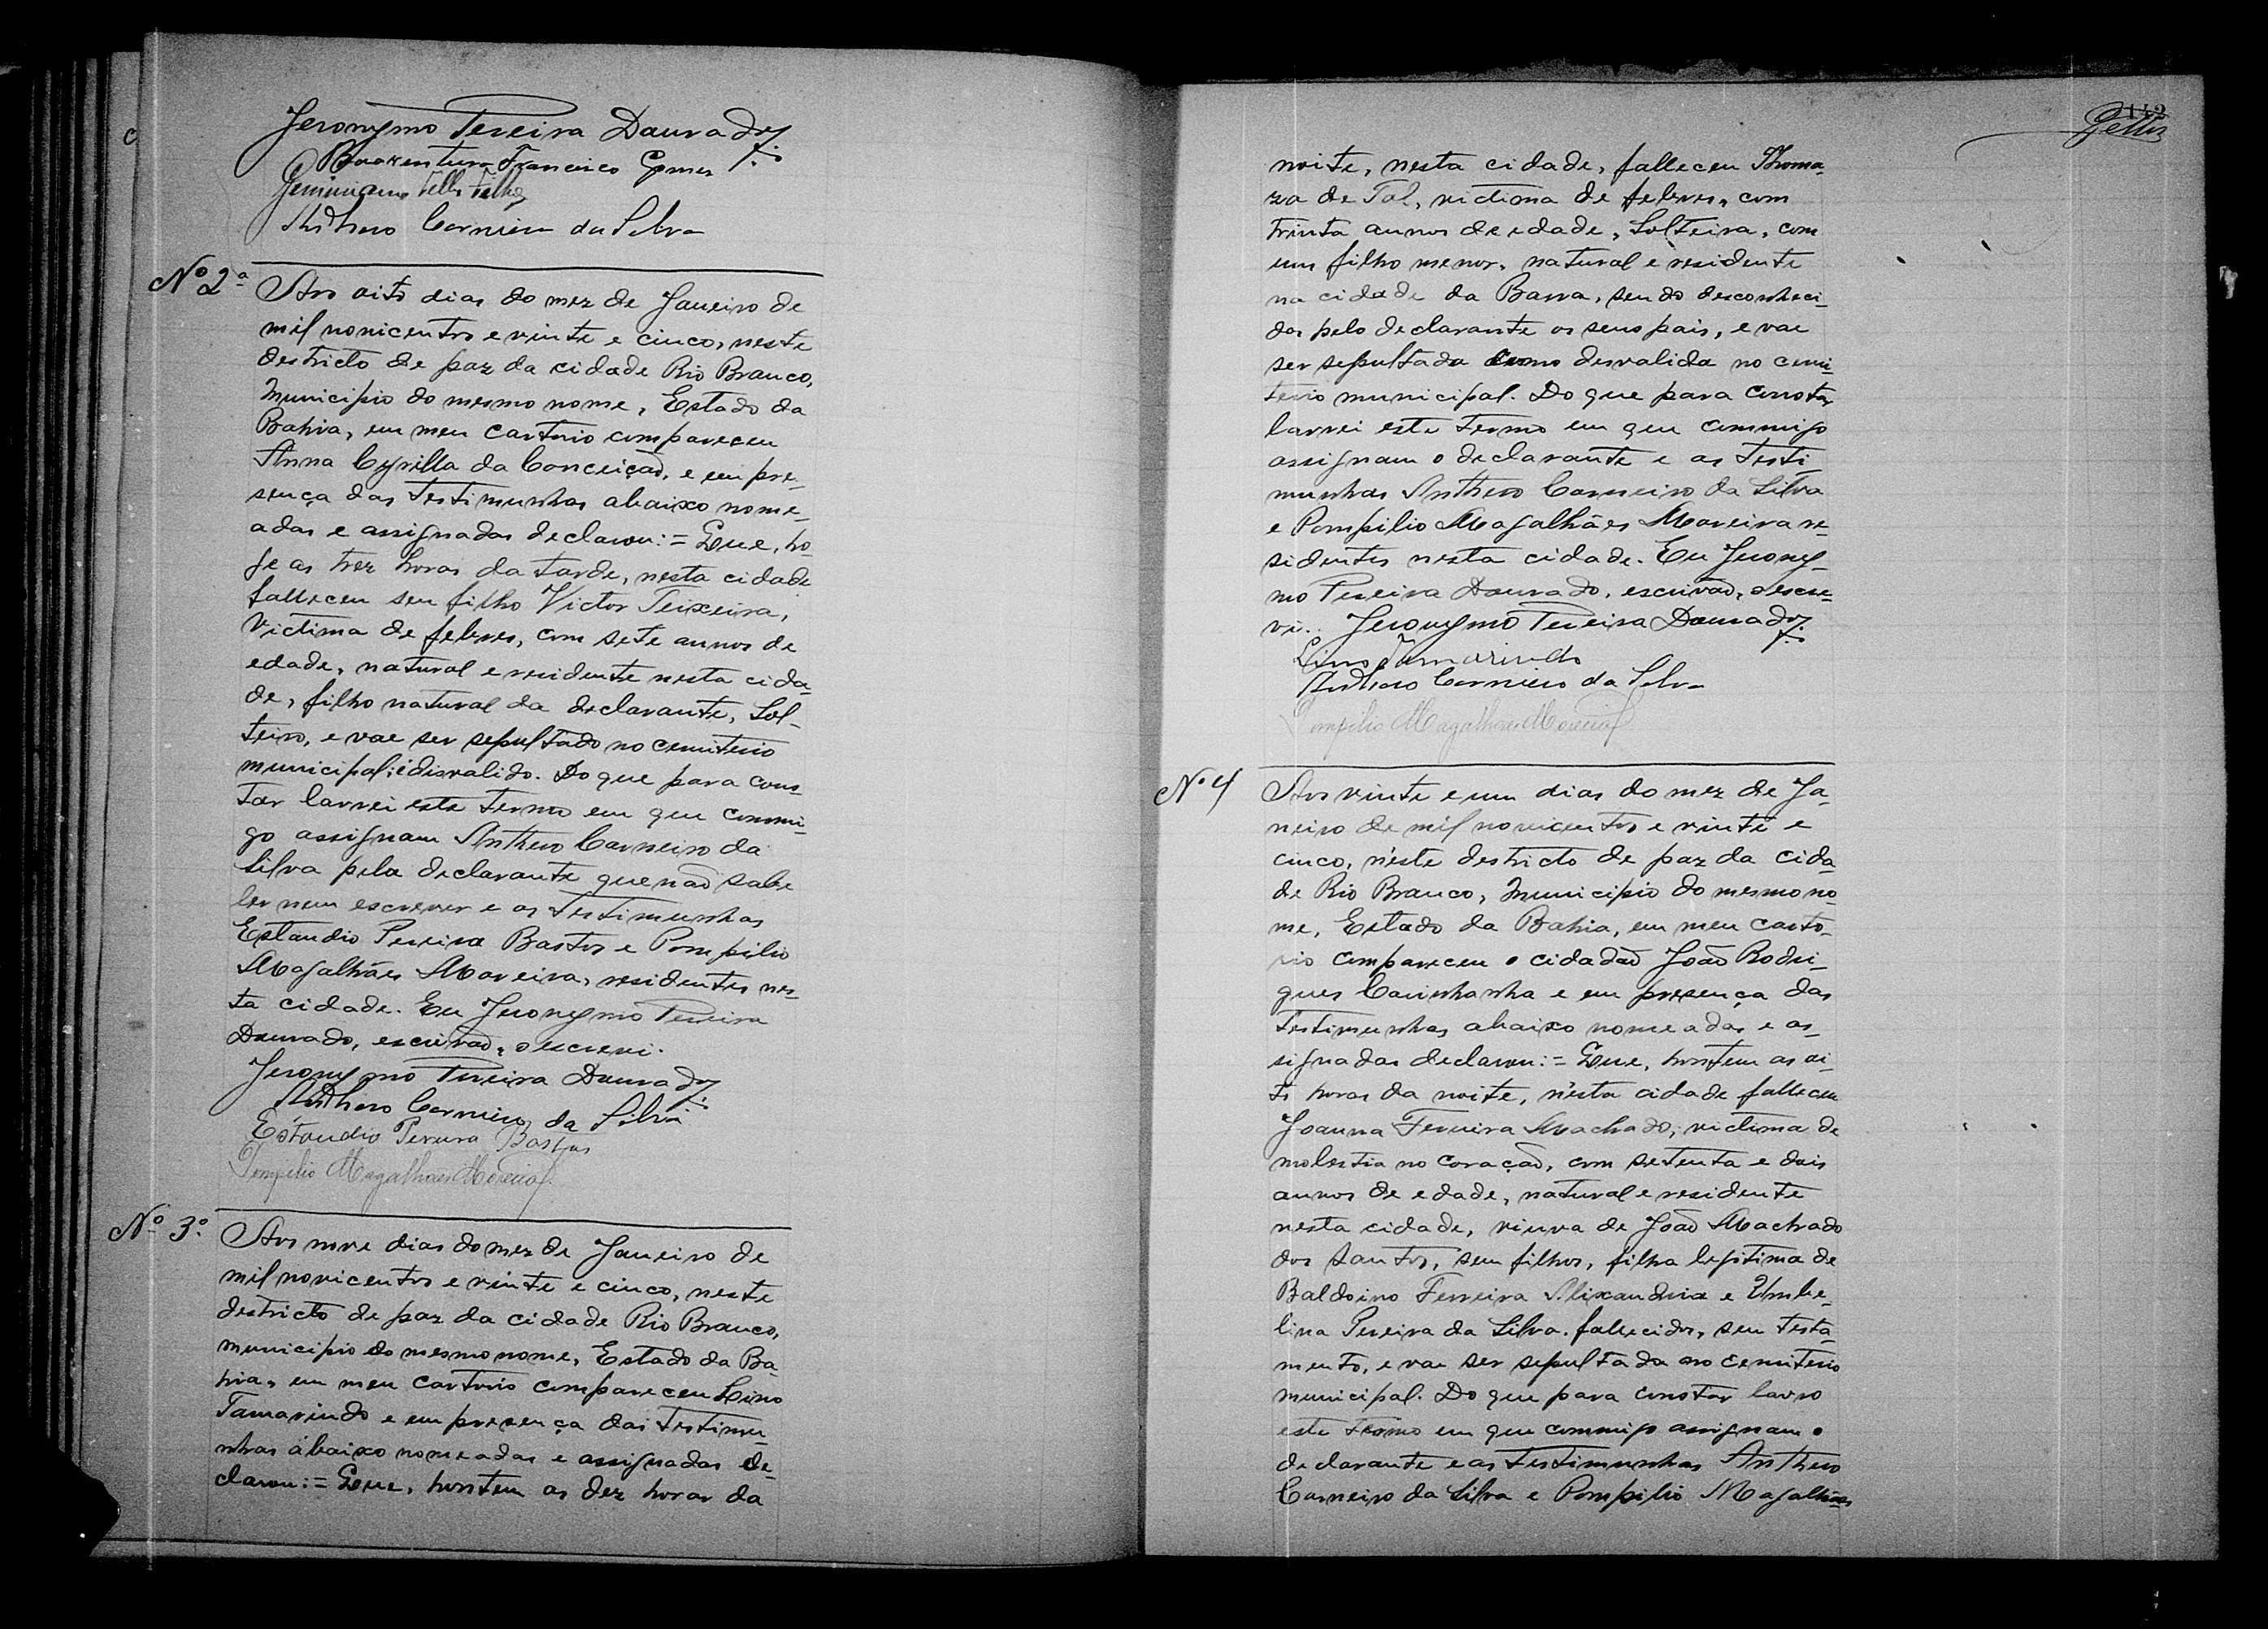 Jeronymo Pereira Dourado
Boaventura Francisco Gomes
Geminiano Telles Filho
Anthero Carneiro da Silva
Nº 2ª
Aos oito dias do mez de Janeiro de
mil novicentos e vinte e cinco, neste
destricto de paz da cidade Rio Branco,
Municipio do mesmo nome, Estado da
Bahia, em meu cartorio compareceu
Anna Cyrilla da Conceição, e em pre-
sença das testimunhas abaixo nome-
adas e assignadas declarou:= Que, ho-
je as trez horas da tarde, nesta cidade
falleceu seu filho Victor Teixeira,
victima de febres, com sete annos de
edade, natural e residente nesta cida-
de, filho natural da declarante, Sol-
teiro, e vae ser sepultado no cemiterio
municipal; é disvalido. Do que para cons-
tar lavrei este termo em que commi-
go assignam Anthero Carneiro da
Silva pela declarante que não sabe
ler nem escrever e as testimunhas
Estaudio Pereira Bastos e Pompilio
Magalhães Moreira, residentes nes-
ta cidade. Eu Jeronymo Pereira
Dourado, escrivão, o escrevi.
Jeronymo Pereira Dourado
Anthero Carneiro da Silva
Estaudio Pereira Bastos
Pompilio Magalhães Moreira
Nº 3º
Aos nove dias do mez de Janeiro de
mil novicentos e vinte e cinco, neste
destricto de paz da cidade Rio Branco,
municipio do mesmo nome, Estado da Ba-
hia, em meu cartorio compareceu Lino
Tamarindo e em presença das testimu-
nhas abaixo nomeadas e assignadas de-
clarou:= Que, hontem as dez horas da
142
noite, nesta cidade, falleceu Thoma-
za de Tal, victima de febres, com
trinta annos de edade, Solteira, com
um filho menor, natural e residente
na cidade da Barra, sendo desconheci-
dos pelo declarante os seus pais, e vae
ser sepultada como desvalida no cemi-
terio municipal. Do que para constar
lavrei este termo em que commigo
assignam o declarante e as testi-
munhas Anthero Carneiro da Silva
e Pompilio Magalhães Moreira re-
sidentes nesta cidade. Eu Jerony-
mo Pereira Dourado, escrivão, o escre-
vi. Jeronymo Pereira Dourado
Lino Tamarindo
Anthero Carneiro da Silva
Pompilio Magalhães Moreira
Nº 4
Aos vinte e um dias do mez de Ja-
neiro de mil novicentos e vinte e
cinco, n'este destricto de paz da cida-
de Rio Branco, Municipio do mesmo no-
me, Estado da Bahia, em meu carto-
rio compareceu o cidadão João Rodri-
gues Carinhanha e em presença das
testimunhas abaixo nomeadas e as-
signadas declarou:= Que, hontem as oi-
to horas da noite, n'esta cidade falleceu
Joanna Ferreira Machado, victima de
molestia no coração, com setenta e dois
annos de edade, natural e residente
nesta cidade, viuva de João Machado
dos Santos, sem filhos, filha legitima de
Baldoino Ferreira Alixandria e Umbe-
lina Pereira da Silva. fallecidos, sem testa-
mento, e vae ser sepultada no cemiterio
municipal. Do que para constar lavro
este termo em que commigo assignam o
declarante e as testimunhas Anthero
Carneiro da Silva e Pompilio Magalhães